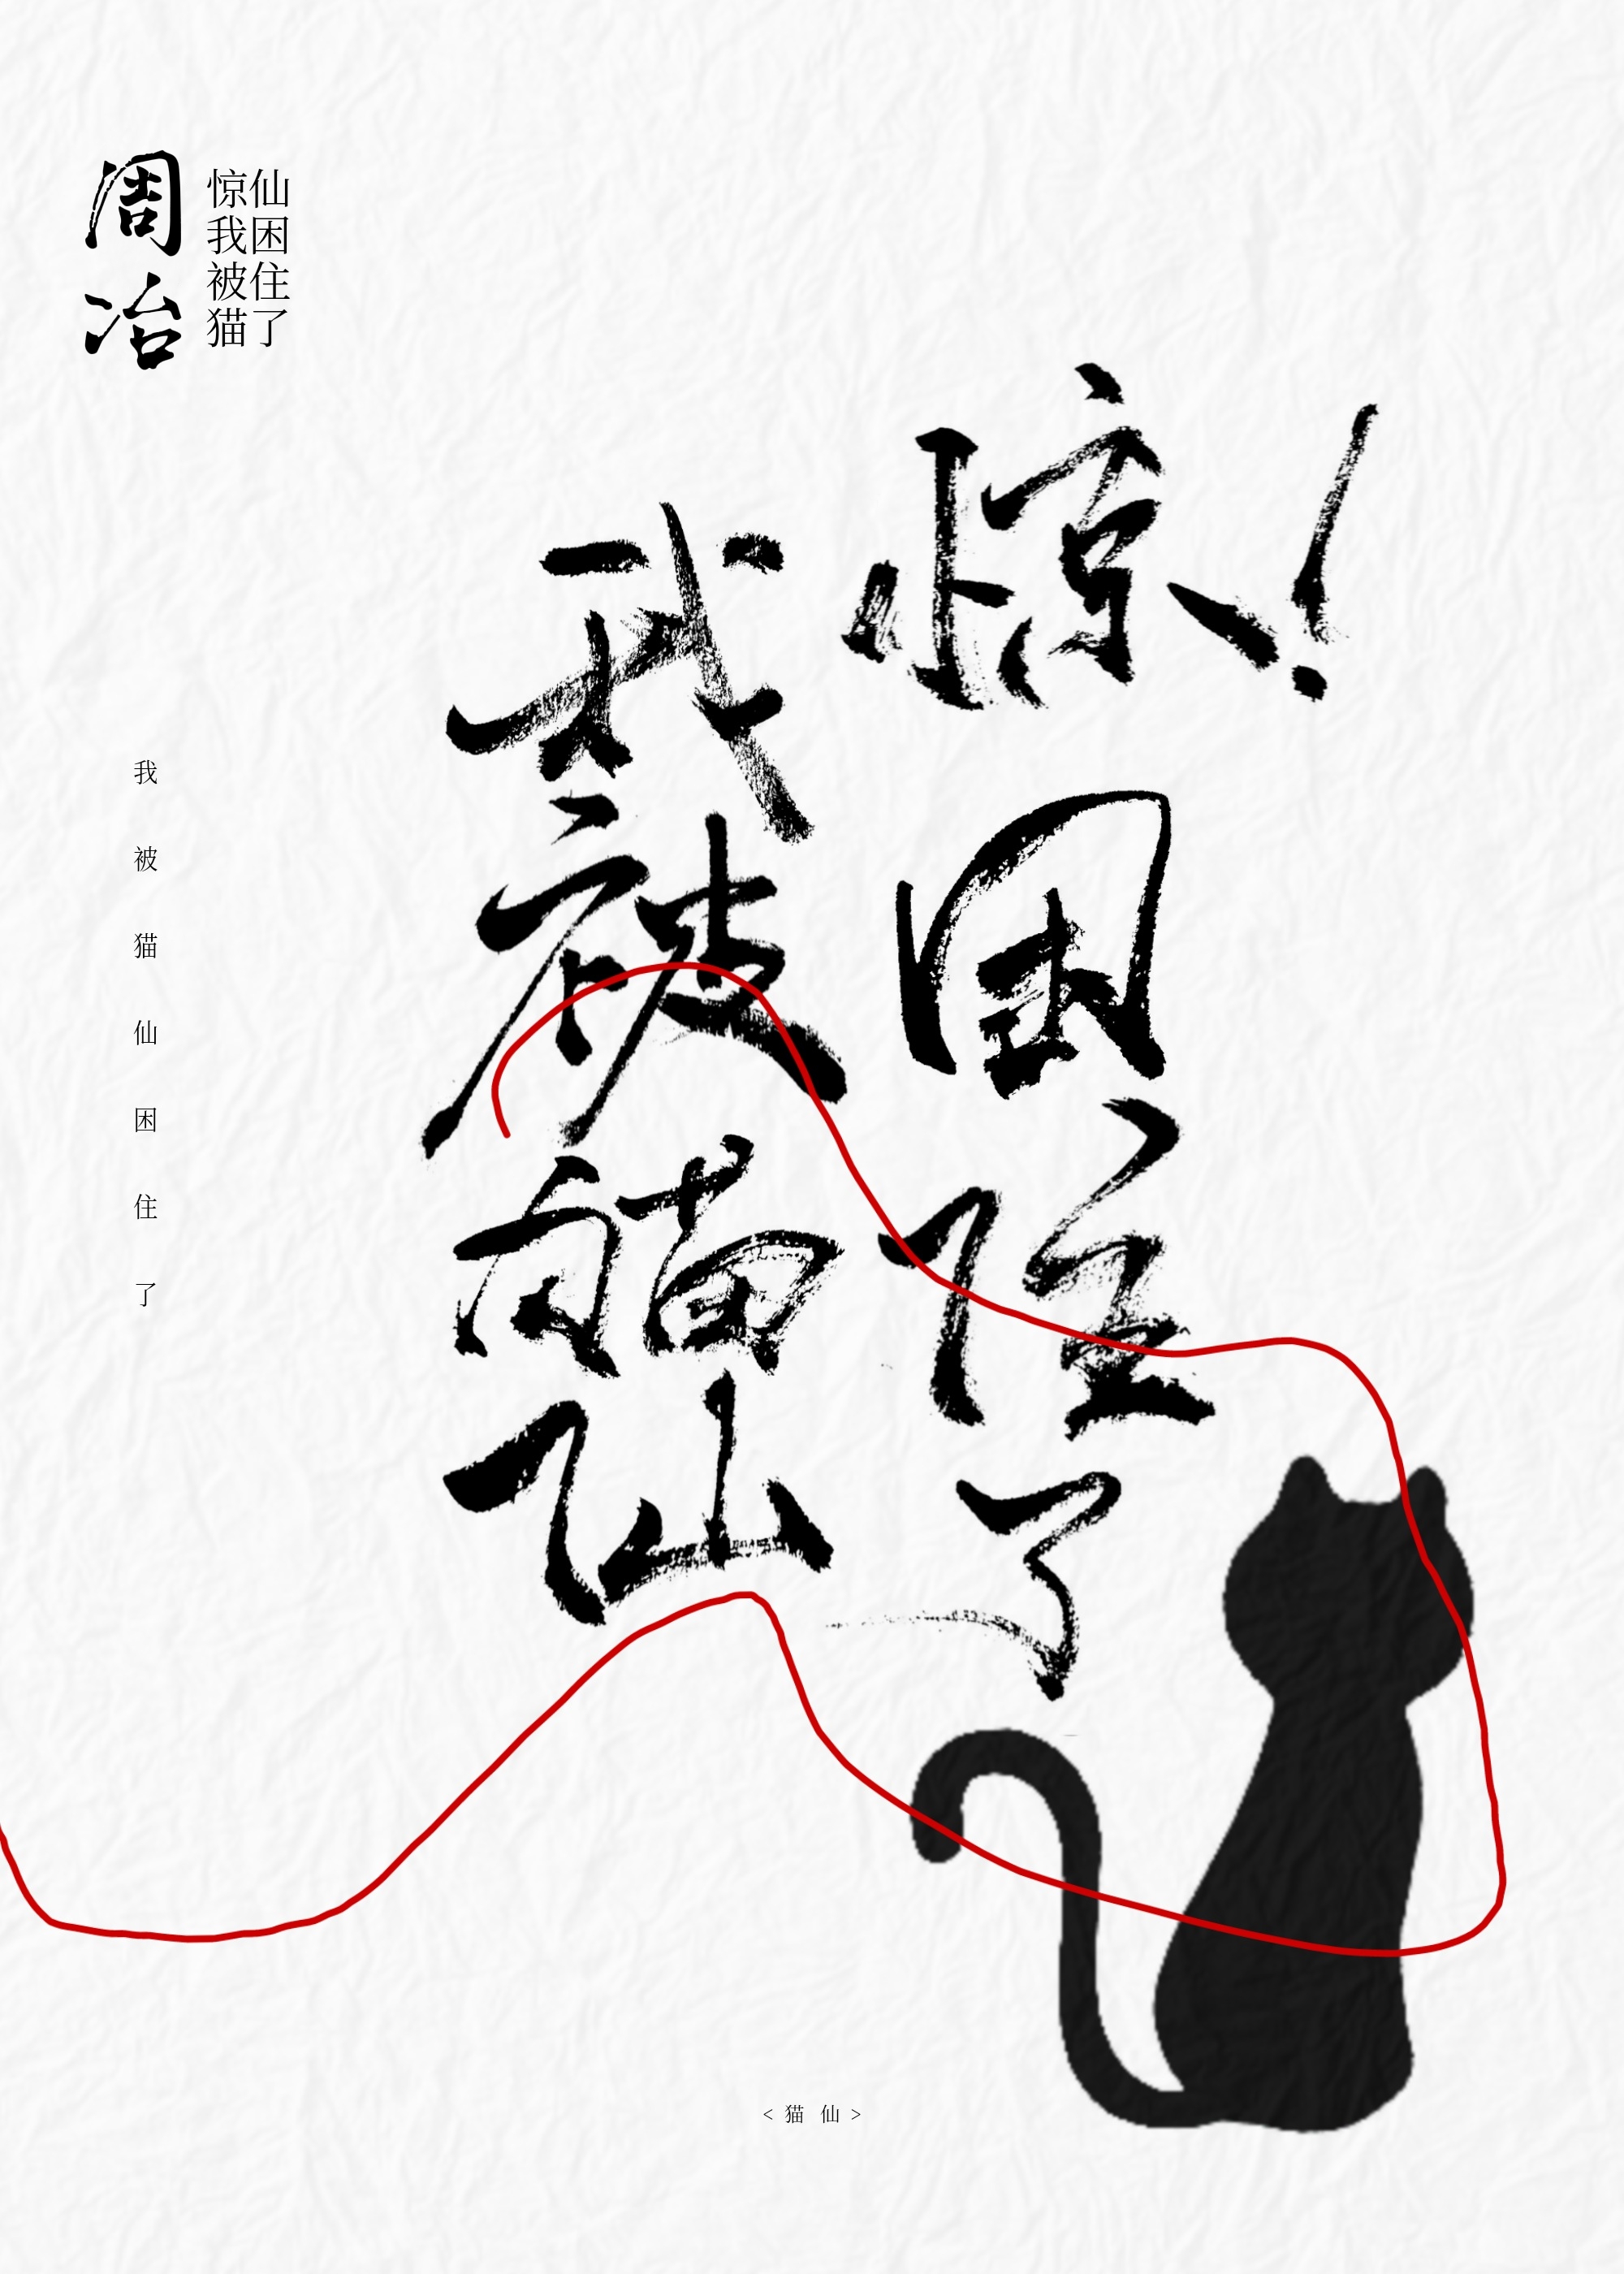 周冶
惊我被猫
仙困住了
惊！
我被猫仙
困住了
我被猫仙困住了
<猫 仙>